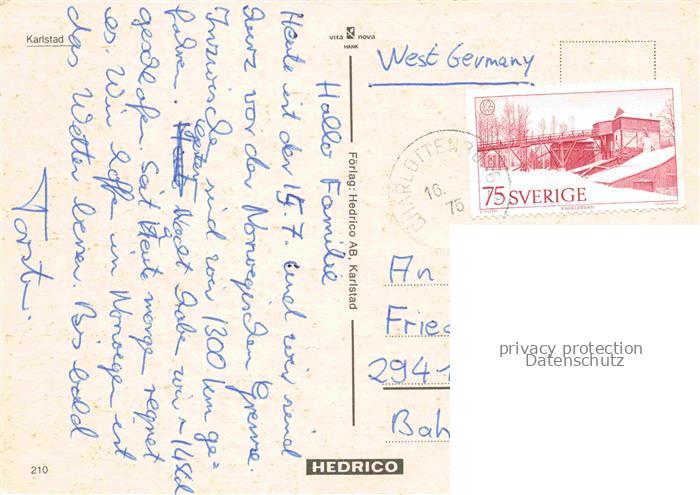 Karlstad
vita nova
HANK
Hallo Familie
Heute ist der 15.7. und wir sind
kurz vor der Norwegischen Grenze.
Inzwischen sind wir 1300 km ge=
fahren. gestern Nacht habe wir ~ 14 Std
geschlafen. Seit Heute morgen regnet
es. Wir hoffen in Norwegen ist
das Wetter besser. Bis bald
Torsten.
Förlag: Hedrico AB, Karlstad
210
HEDRICO
West Germany
CHARLOTTENBERG
16.
75
75 SVERIGE
ENGELSBERG
An
Fried
2941
Bah
privacy protection
Datenschutz